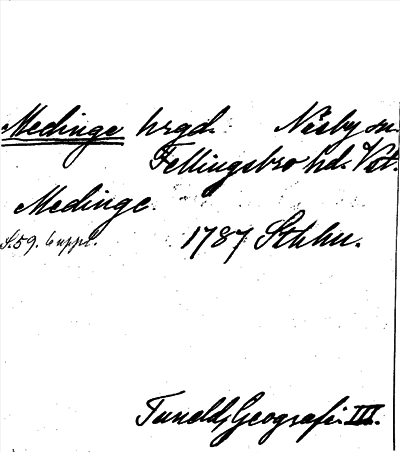 Medinge hrgd. Näsby sn.
Fellingsbro hd. Vst.
Medinge.
S. 59. 6 uppl. 1787 Sthlm.
Tunelds Geografi III.